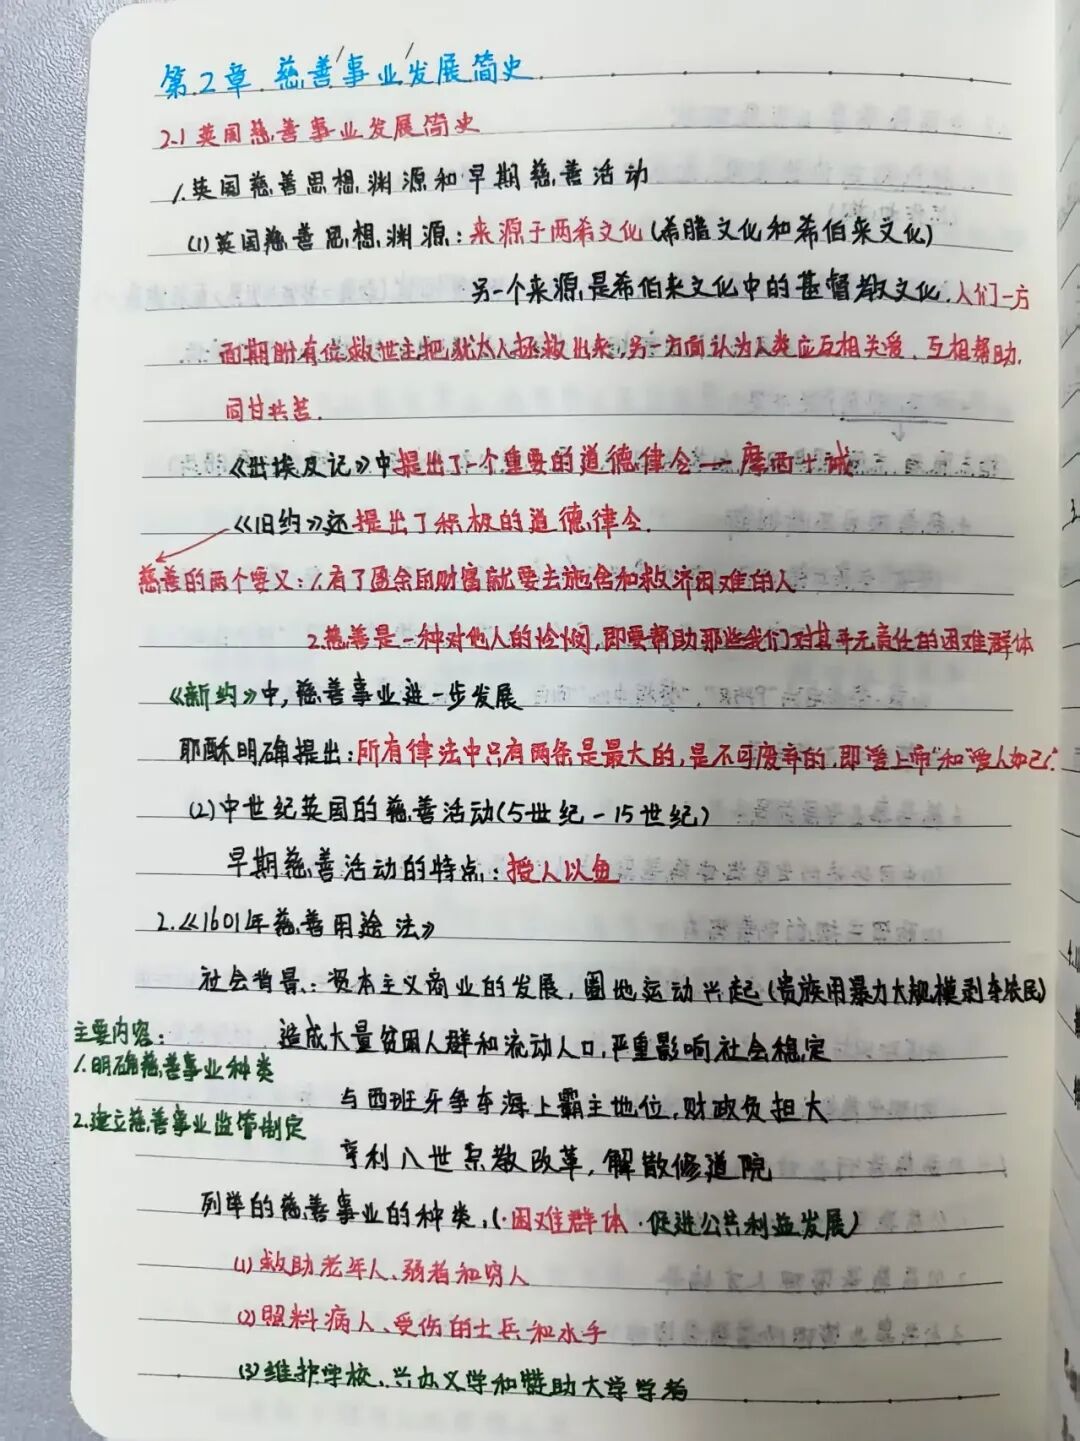 第2章 慈善事业发展简史
2.1 英国慈善事业发展简史
1.英国慈善思想渊源和早期慈善活动
(1)英国慈善思想渊源:来源于两希文化(希腊文化和希伯来文化)
另一个来源是希伯来文化中的基督教文化.人们一方
面期盼有位救世主把犹太人拯救出来,另一方面认为人类应互相关爱、互相帮助,
同甘共苦.
《出埃及记》中提出了一个重要的道德律令——摩西十诫
《旧约》还提出了积极的道德律令.
慈善的两个要义:1.有了盈余的财富就要去施舍和救济困难的人
2.慈善是一种对他人的怜悯,即要帮助那些我们对其并无责任的困难群体
《新约》中,慈善事业进一步发展
耶稣明确提出:所有律法中只有两条是最大的,是不可废弃的,即爱上帝"和爱人如己".
(2)中世纪英国的慈善活动(5世纪-15世纪)
早期慈善活动的特点:授人以鱼
2.《1601年慈善用途法》
社会背景:资本主义商业的发展,圈地运动兴起(贵族用暴力大规模剥夺农民)
主要内容: 造成大量贫困人群和流动人口,严重影响社会稳定
1.明确慈善事业种类
与西班牙争夺海上霸主地位,财政负担大
2.建立慈善事业监管制定
亨利八世宗教改革,解散修道院
列举的慈善事业的种类,(·困难群体·促进公共利益发展)
(1)救助老年人、弱者和穷人
(2)照料病人、受伤的士兵和水手
(3)维护学校、兴办义学和赞助大学学者